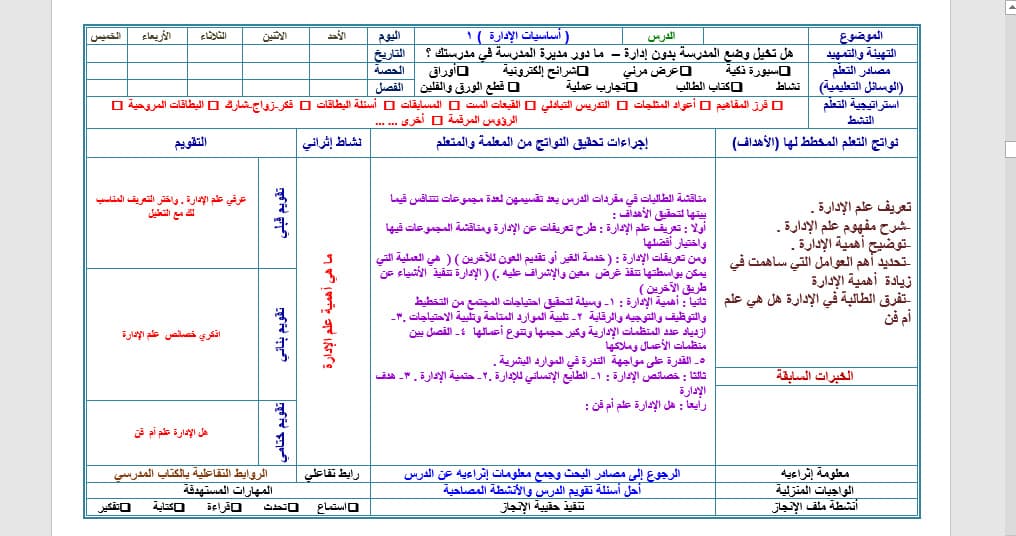 الموضوع الدرس ( أساسيات الإدارة ) ١ اليوم الأحد الاثنين الثلاثاء الأربعاء الخميس
التهيئة والتمهيد هل تخيل وضع المدرسة بدون إدارة – ما دور مديرة المدرسة في مدرستك ؟ التاريخ
مصادر التعلم سبورة ذكية عرض مرئي شرائح إلكترونية أوراق الحصة
(الوسائل التعليمية) نشاط كتاب الطالب تجارب عملية قطع الورق والفلين الفصل
استراتيجية التعلم النشط
فرز المفاهيم أعواد المثلجات التدريس التبادلي القبعات الست المسابقات أسئلة البطاقات فكر-زواج-شارك البطاقات المروحية
الرؤوس المرقمة أخرى ... ...
نواتج التعلم المخطط لها (الأهداف) إجراءات تحقيق النواتج من المعلمة والمتعلم نشاط إثرائي التقويم
تعريف علم الإدارة .
-شرح مفهوم علم الإدارة .
-توضيح أهمية الإدارة .
-تحديد أهم العوامل التي ساهمت في
زيادة أهمية الإدارة
-تفرق الطالبة في الإدارة هل هي علم
أم فن
الخبرات السابقة
مناقشة الطالبات في مفردات الدرس بعد تقسيمهن لعدة مجموعات تتنافس فيما
بينها لتحقيق الأهداف :
أولا : تعريف علم الإدارة : طرح تعريفات عن الإدارة ومناقشة المجموعات فيها
واختيار أفضلها
ومن تعريفات الإدارة : (خدمة الغير أو تقديم العون للآخرين ) ( هي العملية التي
يمكن بواسطتها تنفذ غرض معين والإشراف عليه .) ( الإدارة تنفيذ الأشياء عن
طريق الآخرين )
ثانيا : أهمية الإدارة : ١- وسيلة لتحقيق احتياجات المجتمع من التخطيط
والتوظيف والتوجيه والرقابة ٢- تلبية الموارد المتاحة وتلبية الاحتياجات .٣-
ازدياد عدد المنظمات الإدارية وكبر حجمها وتنوع أعمالها ٤- الفصل بين
منظمات الأعمال وملاكها
٥- القدرة على مواجهة الندرة في الموارد البشرية .
ثالثا : خصائص الإدارة : ١- الطابع الإنساني للإدارة .٢- حتمية الإدارة . ٣- هدف
الإدارة
رابعا : هل الإدارة علم أم فن :
ما هي أهمية علم الإدارة
تقويم قبلي
عرفي علم الإدارة . واختر التعريف المناسب
لك مع التعليل
تقويم بنائي
اذكري خصائص علم الإدارة
تقويم ختامي
هل الإدارة علم أم فن
معلومة إثراءيه الرجوع إلى مصادر البحث وجمع معلومات إثراءيه عن الدرس رابط تفاعلي الروابط التفاعلية بالكتاب المدرسي
الواجبات المنزلية أحل أسئلة تقويم الدرس والأنشطة المصاحبة المهارات المستهدفة
أنشطة ملف الإنجاز تنفيذ حقيبة الإنجاز استماع تحدث قراءة كتابة تفكير